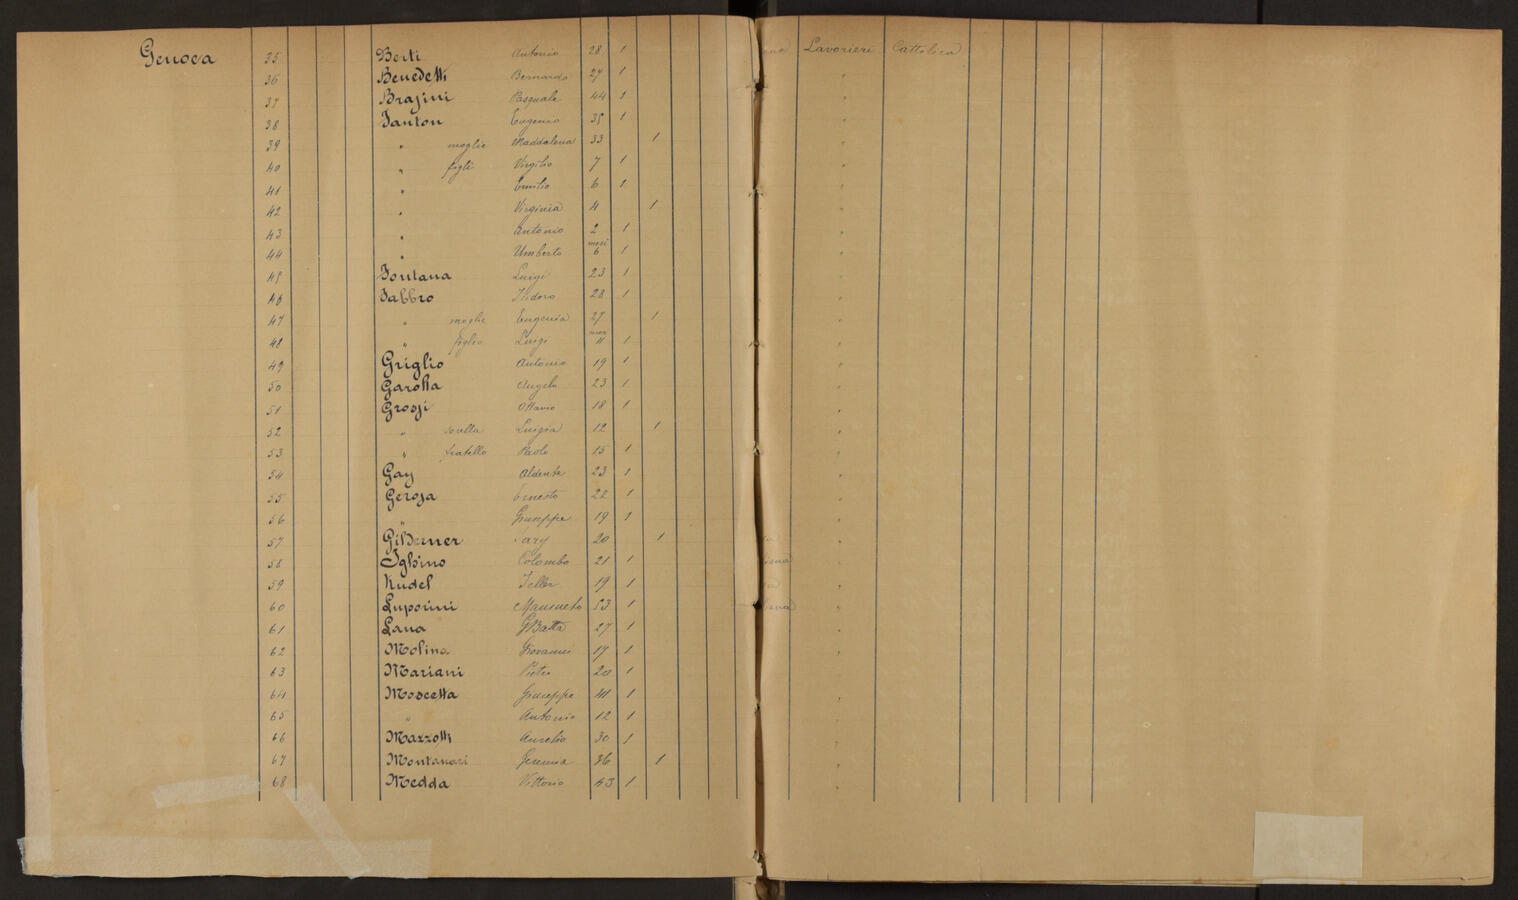 Genova 35 Berti Antonio 28 1 Lavorieri Cattolica
36 Benedetti Bernardo 27 1 "
37 Brasini Pasquale 44 1 "
38 Fanton Eugenio 35 1 "
39 " moglie Maddalena 33 1 "
40 " figli Virgilio 7 1 "
41 " Emilio 6 1 "
42 " Virginia 4 1 "
43 " Antonio 2 1 "
44 " Umberto mesi 6 1 "
45 Fontana Luigi 23 1 "
46 Fabbro Isidoro 28 1 "
47 " moglie Eugenia 27 1 "
48 " figlio Luigi mesi 11 1 "
49 Griglio Antonio 19 1 "
50 Garotta Angelo 23 1 "
51 Grossi Ottavio 18 1 "
52 " sorella Luigia 12 1 "
53 " fratello Paolo 15 1 "
54 Gay 23 1 "
55 Gerosa Ernesto 22 1 "
56 " Giuseppe 19 1 "
57 20 1 "
58 Ighino Colombo 21 1 "
59 Kudel 19 1 "
60 Luporini Mansueto 53 1 "
61 Lana GBatta 27 1 "
62 Molina Giovanni 17 1 "
63 Mariani Pietro 20 1 "
64 Moscetta Giuseppe 41 1 "
65 " Antonio 12 1 "
66 Mazzotti Aurelio 30 1 "
67 Montanari 36 1 "
68 Medda Vittorio 43 1 "